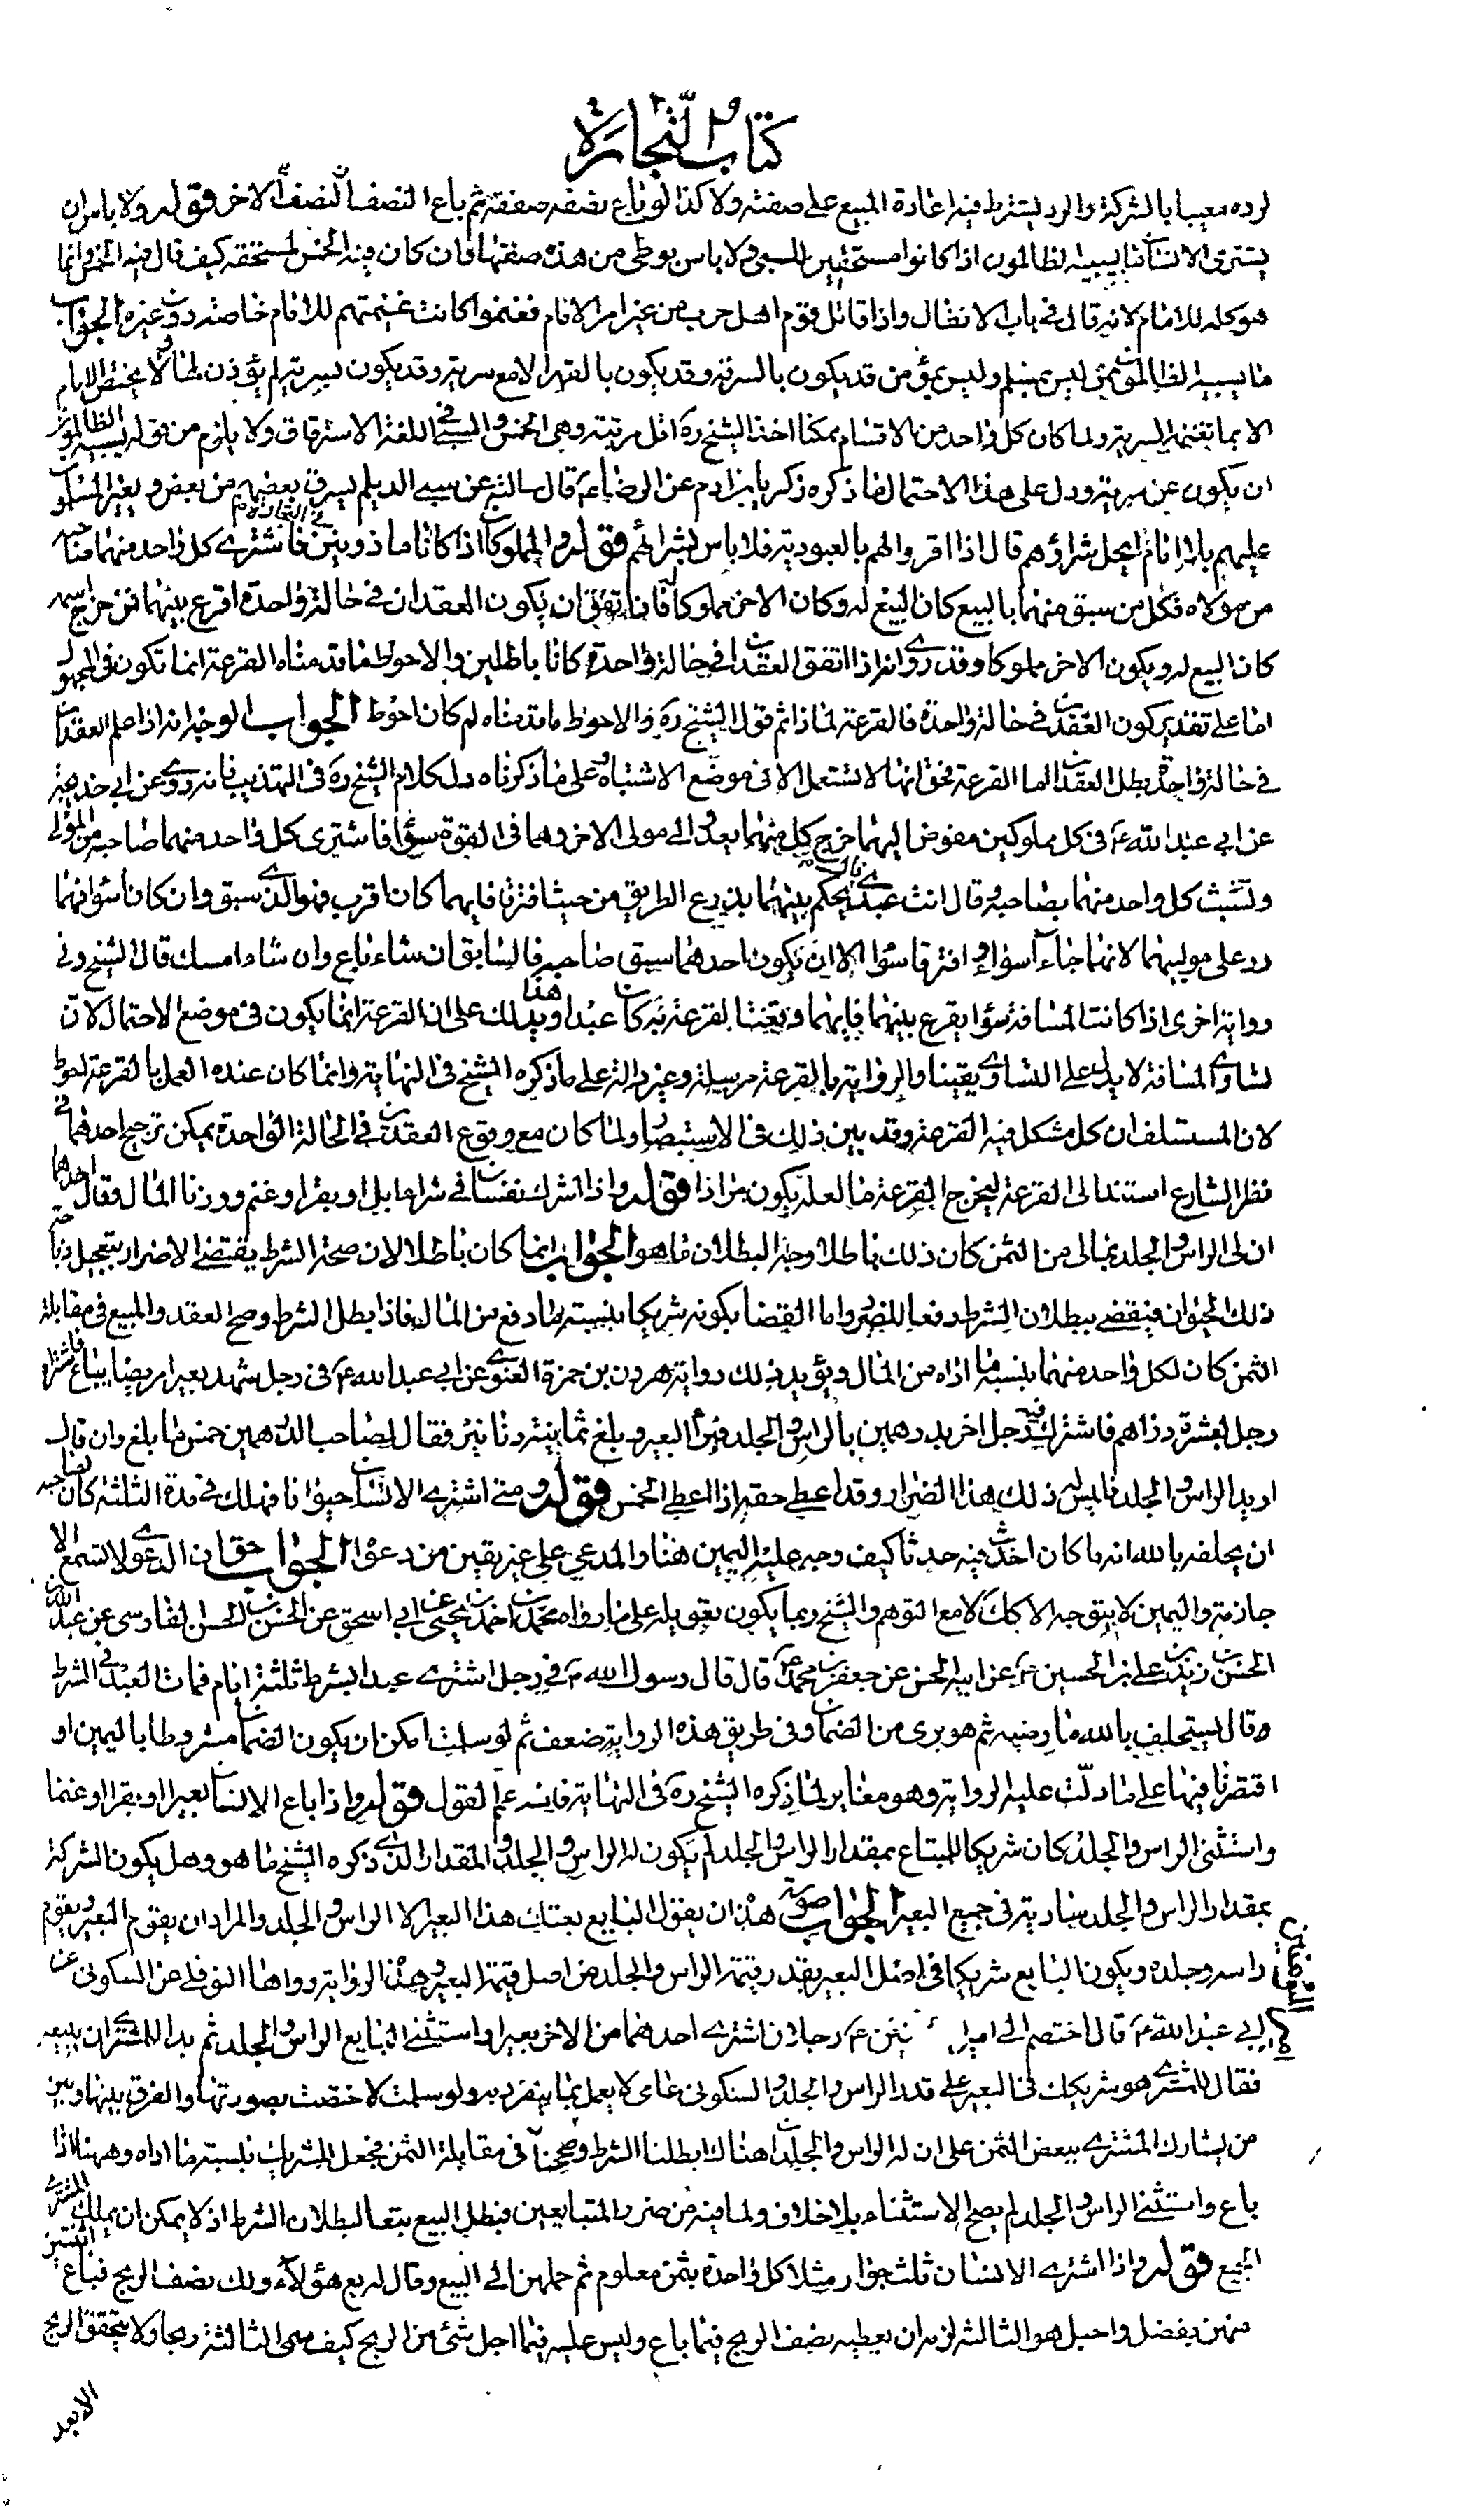 كتاب التجارة
لرده معيبا بالشركة والرد يشترط فيه اعادة المبيع على صفته ولا كذا لو باع نصفه صفقة ثم باع النصف النصف الاخر قوله ولا باس ان
يشترى الانسان ما يسبيه الظالمون اذا كانوا مستحقين للسبي ولا باس بوطى من هذه صفتها وان كان فيه الخمس لمستحقه كيف قال فيه الخمس وانما
هو كله للامام لانه قال في باب الانفال واذا قاتل قوم اهل حرب من غير امر الامام فغنموا كانت غنيمتهم للامام خاصة دون غيره الجواب
ما يسبيه الظالمون ممن ليس بمسلم وليس بمؤمن قد يكون بالسرقة وقد يكون بالقهر لا مع سرية وقد يكون بسرية لم يؤذن لها ولا يختص الامام
الا بما تغنمه السرية ولما كان كل واحد من الاقسام ممكنا اخذ الشيخ ره اقل مرتبة وهي الخمس والسبي في اللغة الاسترقاق ولا يلزم من قوله يسبيه الظالمون
ان يكون عن سرية ودل على هذا الاحتمال ما ذكره زكريا بن ادم عن الرضا ع قال سالته عن سبي الديلم يسرق بعضهم من بعض ويغير المسلمون
عليهم بلا امام ايحل شراؤهم قال اذا اقروا لهم بالعبودية فلا باس بشرائهم قوله والمملوكان اذا كانا ماذونين في التجارة فاشترى كل واحد منهما صاحبه
من مولاه فكل من سبق منهما بالبيع كان البيع له وكان الاخر مملوكا فان اتفق ان يكون العقدان في حالة واحدة اقرع بينهما فمن خرج اسمه
كان البيع له ويكون الاخر مملوكا وقد روى انه اذا اتفق العقدان في حالة واحدة كانا باطلين والاحوط ما قدمناه القرعة انما تكون في المجهول
اما على تقدير كون العقدين في حالة واحدة فالقرعة لماذا ثم قول الشيخ ره والاحوط ما قدمناه لم كان احوط الجواب الوجه انه اذا علم العقدان
في حالة واحدة بطل العقدان اما القرعة فحق انها لا تستعمل الا في موضع الاشتباه وعلى ما ذكرناه دل كلام الشيخ ره في التهذيب فانه روى عن ابي خديجة
عن ابي عبد الله ع في كل مملوكين مفوض اليهما خرج كل منهما يعدو الى مولى الاخر وهما في القوة سواء فاشترى كل واحد منهما صاحبه من المولى
وتشبث كل واحد منهما بصاحبه وقال انت عبدي قال يحكم بينهما يذرع الطريق من حيث افترقا فايهما كان اقرب فهو الذي سبق وان كانا سواء فهما
رد على موليهما لانهما جاءا سواء وافترقا سواء الا ان يكون احدهما سبق صاحبه فالسابق ان شاء باع وان شاء امسك قال الشيخ وفي
رواية اخرى اذا كانت المسافة سواء يقرع بينهما فايهما وقعت القرعة به كان عبدا ويدلك هذا على ان القرعة انما يكون في موضع الاحتمال لان
تساوي المسافة لا يدل على التساوي يقينا والرواية بالقرعة مرسلة وغير دالة على ما ذكره الشيخ في النهاية وانما كان عنده العمل بالقرعة احوط
لان المستسلف ان كل مشكل فيه القرعة وقد بين ذلك في الاستبصار ولما كان مع وقوع العقدين في الحالة الواحدة يمكن ترجيح احدهما في
نظر الشارع استند الى القرعة ليخرج القرعة ما لعله يكون مرادا قوله واذا اشرك نفسان في شراء ابل او بقر او غنم ووزنا المال وقال احدهما
ان لى الراس والجلد بمالى من الثمن كان ذلك باطلا وجه البطلان ما هو الجواب انما كان باطلا لان صحة الشرط يقتضي الاضرار بتعجيل ذباحة
ذلك الحيوان فيقضى ببطلان الشرط دفعا للضرر واما القضا بكونه شريكا بنسبة ما دفع من المال فاذا بطل الشرط وصح العقد والمبيع في مقابلة
الثمن كان لكل واحد منهما بنسبة ما اداه من المال ويؤيد ذلك رواية هرون بن حمزة الغنوي عن ابي عبد الله ع في رجل شهد بعيرا مريضا يباع فاشتراه
رجل بعشرة دراهم فاشترك فيه رجل اخر بدرهمين بالراس والجلد فبرأ البعير وبلغ ثمانية دنانير فقال لصاحب الدرهمين خمس ما بلغ وان قال
اريد الراس والجلد فليس له ذلك هذا الضرار وقد اعطي حقه اذا اعطي الخمس قوله ومتى اشترى الانسان حيوانا فهلك في مدة الثلثة كان لصاحبه
ان يحلفه بالله انه ما كان احدث فيه حدثا كيف وجه عليه اليمين هنا والمدعى على غير يقين من دعواه الجواب حق ان الدعوى لا تسمع الا
جازمة واليمين لا يتوجه الا كذلك لا مع التوهم والشيخ ربما يكون تعويله على ما رواه محمد بن احمد بن يحيى عن ابي اسحق عن الحسن بن الحسين الفارسي عن عبد الله بن
الحسن بن زيد بن علي بن الحسين ع عن ابيه الحسن عن جعفر بن محمد ع قال قال رسول الله ص في رجل اشترى عبدا بشرط ثلثة ايام فمات العبد في الشرط
قال يستحلف بالله ما رضيه ثم هو برى من الضمان وفي طريق هذه الرواية ضعف ثم لو سلمت امكن ان يكون الضمان مشروطا باليمين او
اقتصرنا فيها على ما دلت عليه الرواية وهو مغاير لما ذكره الشيخ ره في النهاية فانه عمم القول قوله واذا باع الانسان بعيرا او بقرا او غنما
واستثنى الراس والجلد كان شريكا للمبتاع بمقدار الراس والجلد لم يكون له الراس والجلد والمقدار الذي ذكره الشيخ ما هو وهل يكون الشركة
بمقدار الراس والجلد سارية في جميع البعير الجواب صورة هذه ان يقول البايع بعتك هذا البعير الا الراس والجلد والمراد ان يقوم البعير ويقوم
راسه وجلده ويكون البايع شريكا في اصل البعير بقدر قيمة الراس والجلد من اصل قيمة البعير وهذه الرواية رواها النوفلي عن السكوني عن
ابي عبد الله ع قال اختصم الى امير ع رجلان اشترى احدهما من الاخر بعيرا واستثنى البايع الراس والجلد ثم بدا للمشتري ان يبيعه
فقال للمشتري هو شريكك في البعير على قدر الراس والجلد والسكوني عامى لا يعمل بما ينفرد به ولو سلمت لاختصت بصورتها والفرق بينها وبين
من يشارك المشتري ببعض الثمن على ان له الراس والجلد ان هناك ابطلنا الشرط وصححنا في مقابلة الثمن فجعل للشريك بنسبة ما اداه وههنا اذا
باع واستثنى الراس والجلد لم يصح الاستثناء بلا خلاف ولما فيه من ضرر المتبايعين فبطل البيع تبعا لبطلان الشرط اذ لا يمكن ان يملك المشتري
الجميع قوله واذا اشترى الانسان ثلث جوار مثلا كل واحدة بثمن معلوم ثم حملهن الى البيع وقال له بع هؤلاء ولك نصف الربح فباع اثنتين
منهن بفضل واحبل هو الثالثة لزمه ان يعطيه نصف الربح فيما باع وليس عليه فيما احبل شئ من الربح كيف سمى الثالثة ربحا ولا يتحقق الربح
الا بعد